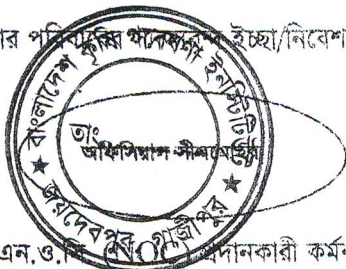 র পরিবর্তিত ইচ্ছা/নিবেশ
বাংলাদেশ কৃষি গবেষণা ইনস্টিটিউট
তাং
অফিসিয়াল সীলমোহর
জয়দেবপুর, গাজীপুর
এন.ও.সি (NOC) প্রদানকারী কর্মক